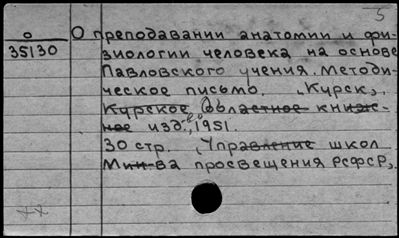 5
О преподавании анатомии и фи-
о
35130
зиологии человека на основе
Павловского учения. Методи-
ческое письмо. „Курск",
Курское областное книж-
ное изд-во, 1951.
30 стр. „Управление школ
Мин-ва просвещения РСФСР„.